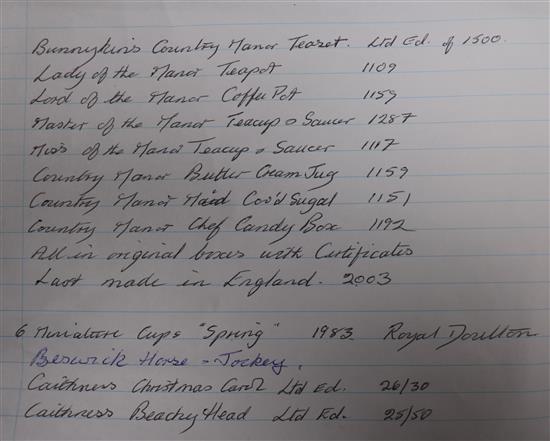 Bunnykins Country Manor Teaset. Ltd Ed. of 1500.
Lady of the Manor Teapot 1109
Lord of the Manor Coffee Pot 1159
Master of the Manor Teacup & Saucer 1287
Miss of the Manor Teacup & Saucer 1117
Country Manor Butler Cream Jug 1159
Country Manor Maid Cov'd Sugar 1151
Country Manor Chef Candy Box 1192
All in original boxes with Certificates
Last made in England. 2003
6 Miniature Cups "Spring" 1983 Royal Doulton
Beswick Horse - Jockey.
Caithness Christmas Carol Ltd Ed. 26/30
Caithness Beachy Head Ltd Ed. 25/50